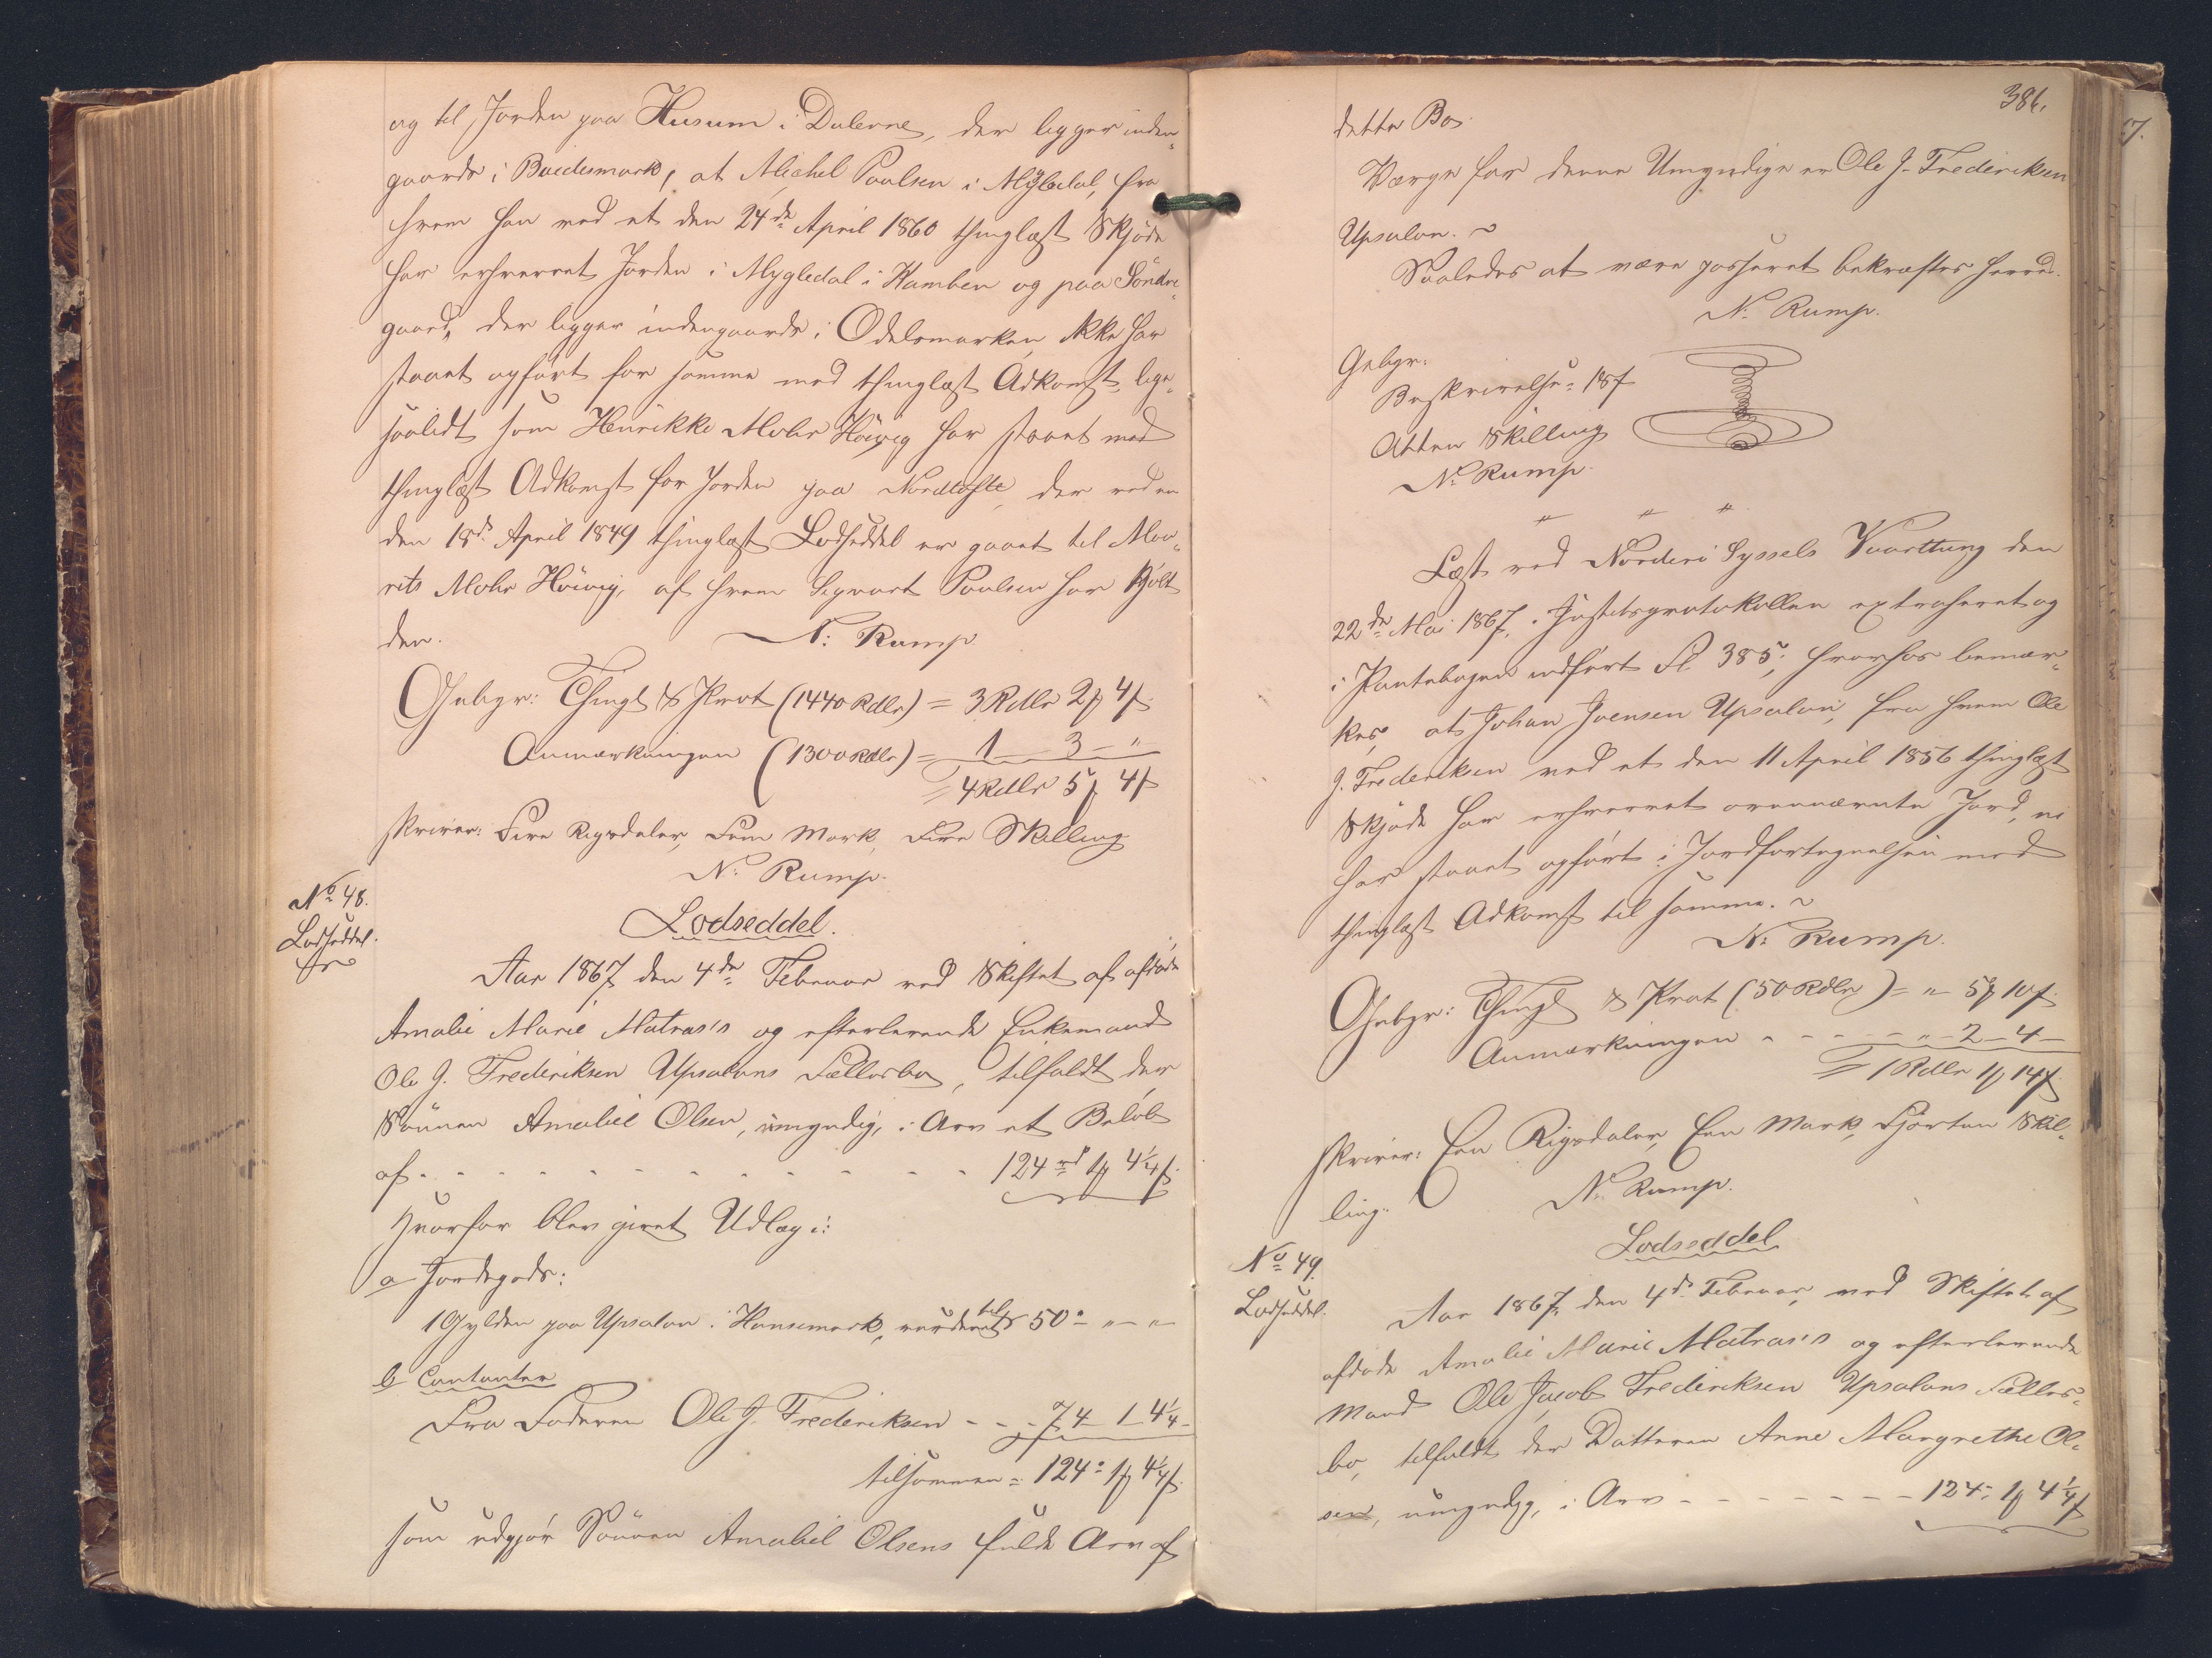 og til Jorden paa Husum i Dalerne, der ligger inden„
gaards i Buidesmark, at Michel Poulsen i Mÿgledal, fra
hvem han ved et den 24de April 1860 thinglæst Skjöde
har erhvervet Jorden i Mygledal i Kamben og paa Söndre„
gaard, der ligger indengaards i Odelsmarken, ikke har
staaet opfört for samme med thinglæst Adkomst, lige„
saalidt som Henrikke Mohr Höivig har staaet med
thinglæst Adkomst for Jorden paa Nordtofte, der ved en
den 18de April 1849 thinglæst Lodseddel er gaaet til Mou„
rits Mohr Höivig, af hvem Sigvart Poulsen har kjöbt
den.
N: Rump.
Gebyr: Thingl & Prot (1440 Rdlr) = 3 Rdlr 2 ℳ 4 ſ
Anmærkningen (1300 Rdlr) = 1 – 3 – „
= 4 Rdlr 5 ℳ 4 ſ
skriver: Fire Rigsdaler, Fem Mark, Fire Skilling
N: Rump.
No 48.
Lodseddel.
Lodseddel.
Aar 1867 den 4de Februar ved Skiftet af afdöde
Amalie Marie Matras's og efterlevende Enkemand
Ole J. Frederiksen Upsalons Fællesbo, tilfaldt der
Sönnen Amaliel Olsen, umyndig, i Arv et Belöb
af - - - - - - - - - - - - 124 rd 1 ℳ 4¼ ſ.
hvorfor blev givet Udlæg i:
a Jordegods:
1 Gylden paa Upsalon i Hansemark, vurderet til 50 = „ – „ –
b Contanter
Fra Faderen Ole J. Frederiksen - - - 74 1 4¼ –
tilsammen = 124 = 1 ℳ 4¼ ſ.
som udgjör Sönnen Amaliel Olsens fulde Arv af
386.
dette Bo.
Værge for denne Umyndige er Ole J. Frederiksen
Upsalon. ~
Saaledes at være passeret bekræftes herved.
N: Rump.
Gebyr:
Beskrivelse = 18 ſ
Atten Skilling
N: Rump.
„ „ „
Læst ved Norderi Syssels Vaarting den
22de Mai 1867, i Justitsprotokollen extraheret og
i Pantebogen indfört Fl. 385, hvorhos bemær„
kes, at Johan Joensen Upsalon, fra hvem Ole
J. Frederiksen ved et den 11 April 1856 thinglæst
Skjöde har erhvervet ovennævnte Jord, ei
har staaet opfört i Jordfortegnelsen med
thinglæst Adkomst til samme. ~
N: Rump.
Gebyr: Thingl & Prot (50 Rdlr) = „ – 5 ℳ 10 ſ
Anmærkningen - - - - „ – 2 – 4 –
= 1 Rdlr 1 ℳ 14 ſ
skriver: Een Rigsdaler, Een Mark, Fjorten Skil„
ling.
N: Rump.
No 49.
Lodseddel.
Lodseddel
Aar 1867, den 4de Februar, ved Skiftet af
afdöde Amalie Marie Matras's og efterlevende
Mand Ole Jacob Frederiksen Upsalons Fælles„
bo, tilfaldt der Datteren Anne Margrethe Ol„
sen, umyndig, i Arv - - - - - - - 124 = 1 ℳ 4¼ ſ